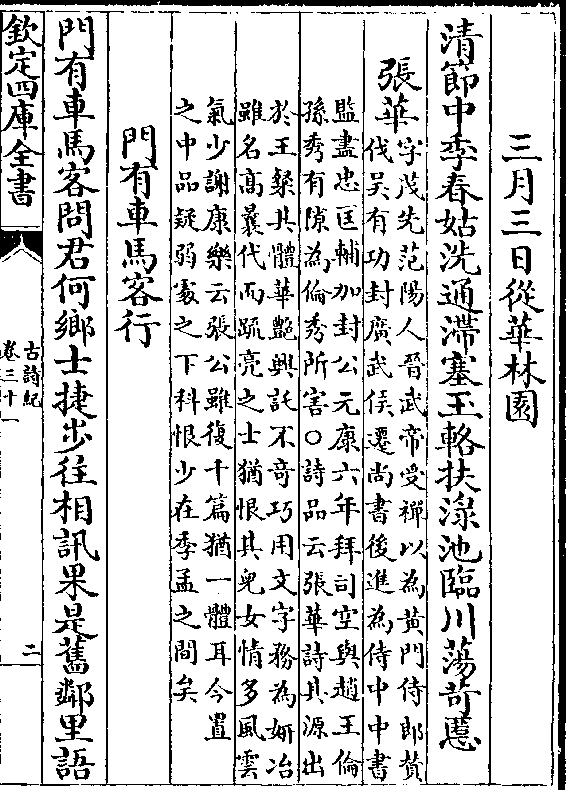 三月三日從華林園
清節中季春姑洗通滯塞玉輅扶淥池臨川蕩苛慝
張華
字茂先范陽人晉武帝受禪以為黄門侍郎賛
伐吴有功封廣武侯遷尚書後進為侍中中書
監盡忠匡輔加封公元康六年拜司空與趙王倫
孫秀有隙為倫秀所害○詩品云張華詩其源出
於王粲其體華艶興託不竒巧用文字務為妍冶
雖名高曩代而疏亮之士猶恨其兒女情多風雲
氣少謝康樂云張公雖復千篇猶一體耳今置
之中品疑弱處之下科恨少在季孟之間矣
門有車馬客行
門有車馬客問君何鄉士捷步往相訊果是舊鄰里語
欽定四庫全書
古詩紀
卷三十一
二